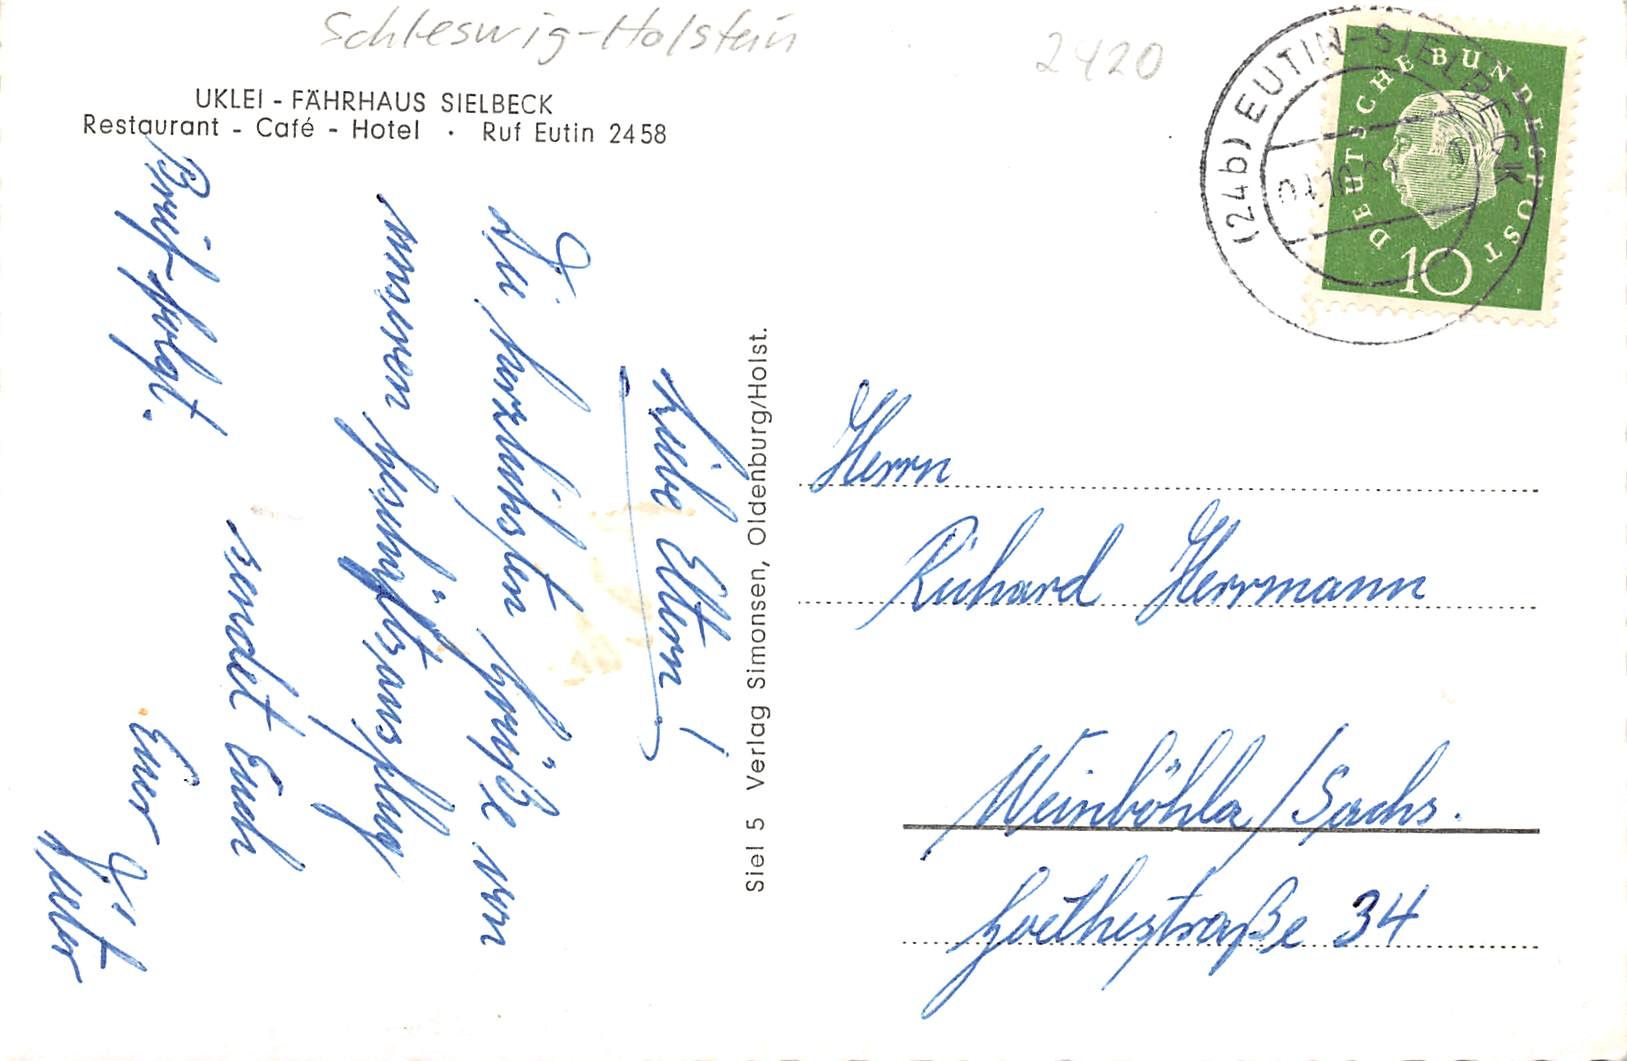 Schleswig-Holstein
2420
UKLEI - FÄHRHAUS SIELBECK
Restaurant - Café - Hotel · Ruf Eutin 2458
(24b) EUTIN-SIELBECK
DEUTSCHE BUNDESPOST
10
Liebe Eltern!
Die herzlichsten Grüße von
unserem Geschäftsausflug
sendet Euch
Euer
Brief folgt.
Siel 5 Verlag Simonsen, Oldenburg/Holst.
Herrn
Richard Herrmann
Weinböhla/Sachs.
Goethestraße 34